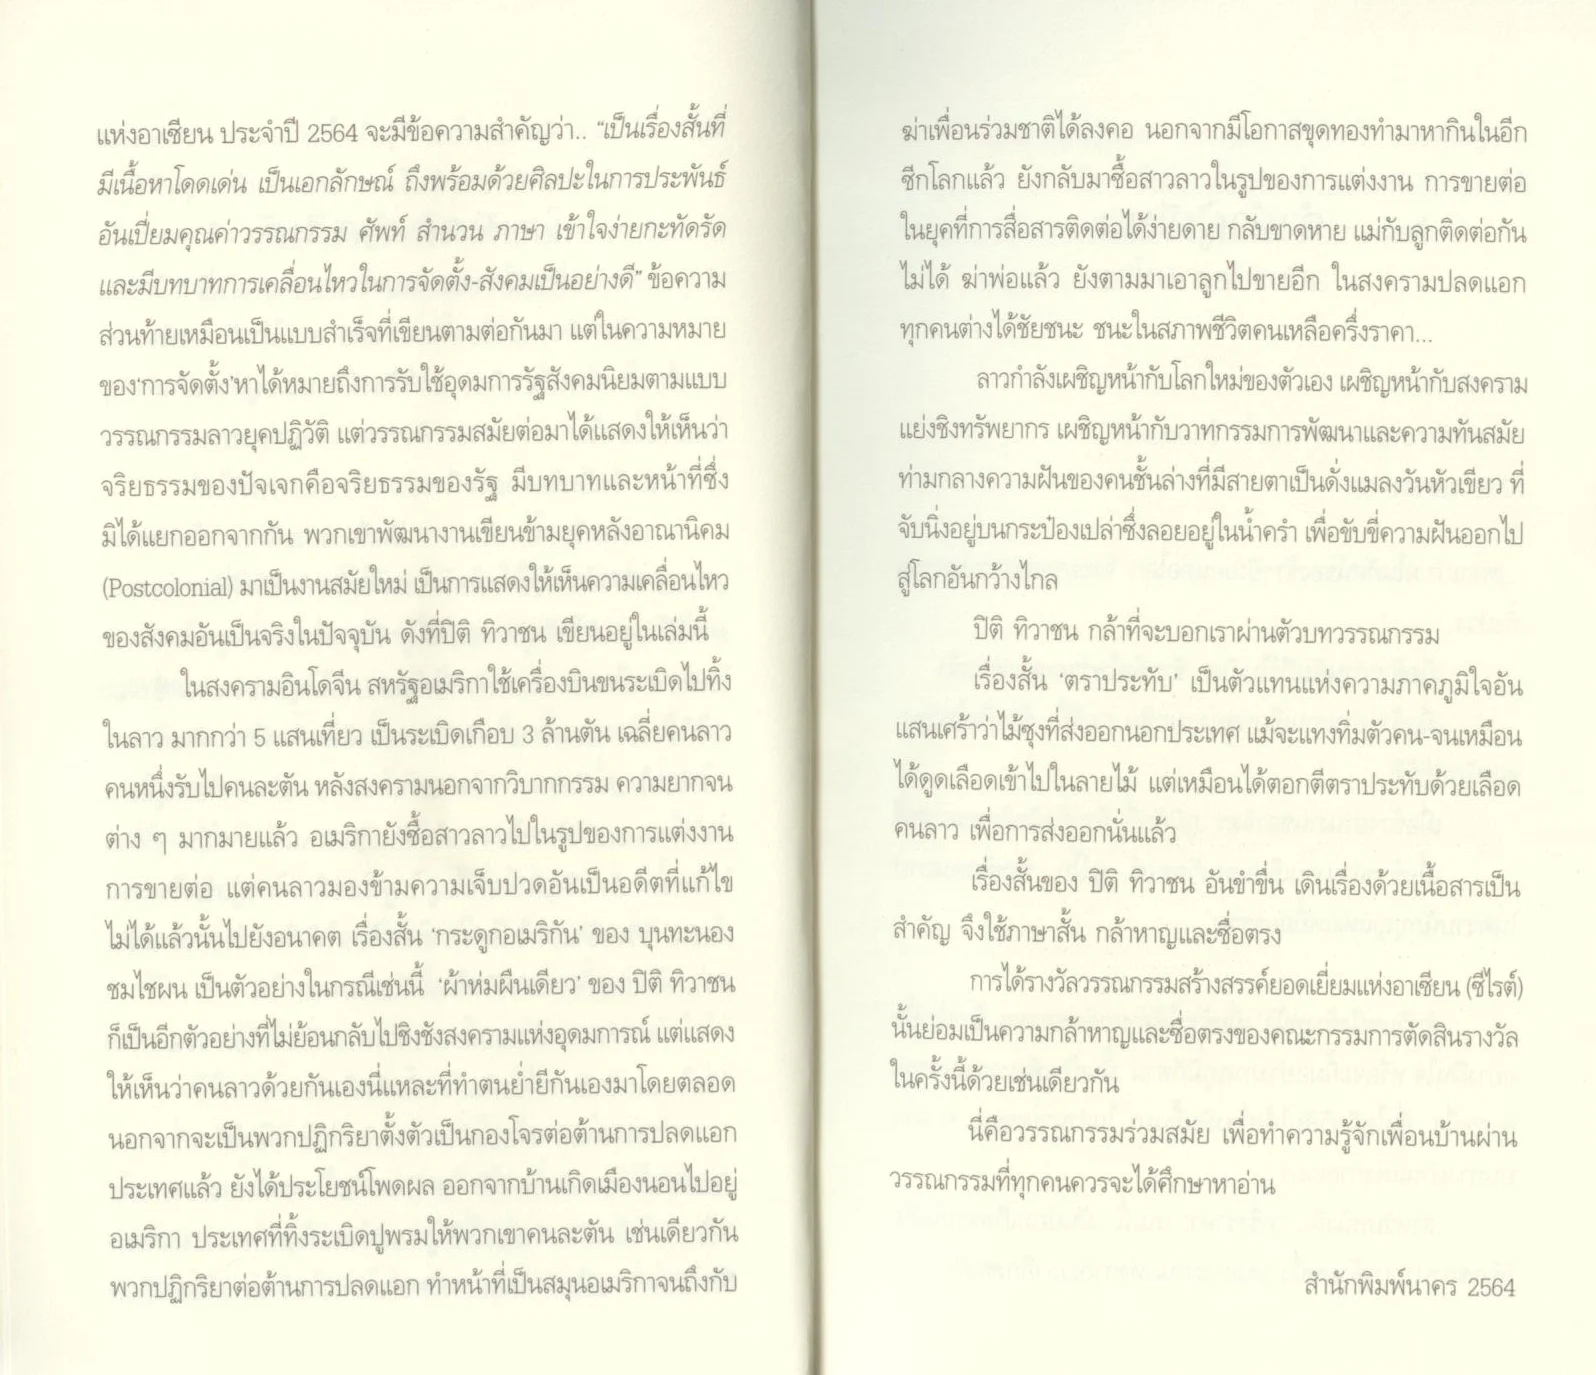 แห่งอาเซียน ประจำปี 2564 จะมีข้อความสำคัญว่า.. “เป็นเรื่องสั้นที่
มีเนื้อหาโดดเด่น เป็นเอกลักษณ์ ถึงพร้อมด้วยศิลปะในการประพันธ์
อันเปี่ยมคุณค่าวรรณกรรม ศัพท์ สำนวน ภาษา เข้าใจง่ายกะทัดรัด
และมีบทบาทการเคลื่อนไหวในการจัดตั้ง-สังคมเป็นอย่างดี” ข้อความ
ส่วนท้ายเหมือนเป็นแบบสำเร็จที่เขียนตามต่อกันมา แต่ในความหมาย
ของ‘การจัดตั้ง’หาได้หมายถึงการรับใช้อุดมการรัฐสังคมนิยมตามแบบ
วรรณกรรมลาวยุคปฏิวัติ แต่วรรณกรรมสมัยต่อมาได้แสดงให้เห็นว่า
จริยธรรมของปัจเจกคือจริยธรรมของรัฐ มีบทบาทและหน้าที่ซึ่ง
มิได้แยกออกจากกัน พวกเขาพัฒนางานเขียนข้ามยุคหลังอาณานิคม
(Postcolonial) มาเป็นงานสมัยใหม่ เป็นการแสดงให้เห็นความเคลื่อนไหว
ของสังคมอันเป็นจริงในปัจจุบัน ดังที่ปิติ ทิวาชน เขียนอยู่ในเล่มนี้
ในสงครามอินโดจีน สหรัฐอเมริกาใช้เครื่องบินขนระเบิดไปทิ้ง
ในลาว มากกว่า 5 แสนเที่ยว เป็นระเบิดเกือบ 3 ล้านตัน เฉลี่ยคนลาว
คนหนึ่งรับไปคนละตัน หลังสงครามนอกจากวิบากกรรม ความยากจน
ต่าง ๆ มากมายแล้ว อเมริกายังซื้อสาวลาวไปในรูปของการแต่งงาน
การขายต่อ แต่คนลาวมองข้ามความเจ็บปวดอันเป็นอดีตที่แก้ไข
ไม่ได้แล้วนั้นไปยังอนาคต เรื่องสั้น ‘กระดูกอเมริกัน’ ของ บุนทะนอง
ชมไชผน เป็นตัวอย่างในกรณีเช่นนี้ ‘ผ้าห่มผืนเดียว’ ของ ปิติ ทิวาชน
ก็เป็นอีกตัวอย่างที่ไม่ย้อนกลับไปชิงชังสงครามแห่งอุดมการณ์ แต่แสดง
ให้เห็นว่าคนลาวด้วยกันเองนี่แหละที่ทำตนย่ำยีกันเองมาโดยตลอด
นอกจากจะเป็นพวกปฏิกริยาตั้งตัวเป็นกองโจรต่อต้านการปลดแอก
ประเทศแล้ว ยังได้ประโยชน์โพดผล ออกจากบ้านเกิดเมืองนอนไปอยู่
อเมริกา ประเทศที่ทิ้งระเบิดปูพรมให้พวกเขาคนละตัน เช่นเดียวกัน
พวกปฏิกริยาต่อต้านการปลดแอก ทำหน้าที่เป็นสมุนอเมริกาจนถึงกับ
ฆ่าเพื่อนร่วมชาติได้ลงคอ นอกจากมีโอกาสขุดทองทำมาหากินในอีก
ซีกโลกแล้ว ยังกลับมาซื้อสาวลาวในรูปของการแต่งงาน การขายต่อ
ในยุคที่การสื่อสารติดต่อได้ง่ายดาย กลับขาดหาย แม่กับลูกติดต่อกัน
ไม่ได้ ฆ่าพ่อแล้ว ยังตามมาเอาลูกไปขายอีก ในสงครามปลดแอก
ทุกคนต่างได้ชัยชนะ ชนะในสภาพชีวิตคนเหลือครึ่งราคา...
ลาวกำลังเผชิญหน้ากับโลกใหม่ของตัวเอง เผชิญหน้ากับสงคราม
แย่งชิงทรัพยากร เผชิญหน้ากับวาทกรรมการพัฒนาและความทันสมัย
ท่ามกลางความฝันของคนชั้นล่างที่มีสายตาเป็นดั่งแมลงวันหัวเขียว ที่
จับนิ่งอยู่บนกระป๋องเปล่าซึ่งลอยอยู่ในน้ำครำ เพื่อขับขี่ความฝันออกไป
สู่โลกอันกว้างไกล
ปิติ ทิวาชน กล้าที่จะบอกเราผ่านตัวบทวรรณกรรม
เรื่องสั้น ‘ตราประทับ’ เป็นตัวแทนแห่งความภาคภูมิใจอัน
แสนเศร้าว่าไม้ซุงที่ส่งออกนอกประเทศ แม้จะแทงทิ่มตัวคน-จนเหมือน
ได้ดูดเลือดเข้าไปในลายไม้ แต่เหมือนได้ตอกตีตราประทับด้วยเลือด
คนลาว เพื่อการส่งออกนั่นแล้ว
เรื่องสั้นของ ปิติ ทิวาชน อันขำขื่น เดินเรื่องด้วยเนื้อสารเป็น
สำคัญ จึงใช้ภาษาสั้น กล้าหาญและซื่อตรง
การได้รางวัลวรรณกรรมสร้างสรรค์ยอดเยี่ยมแห่งอาเซียน (ซีไรต์)
นั้นย่อมเป็นความกล้าหาญและซื่อตรงของคณะกรรมการตัดสินรางวัล
ในครั้งนี้ด้วยเช่นเดียวกัน
นี่คือวรรณกรรมร่วมสมัย เพื่อทำความรู้จักเพื่อนบ้านผ่าน
วรรณกรรมที่ทุกคนควรจะได้ศึกษาหาอ่าน
สำนักพิมพ์นาคร 2564